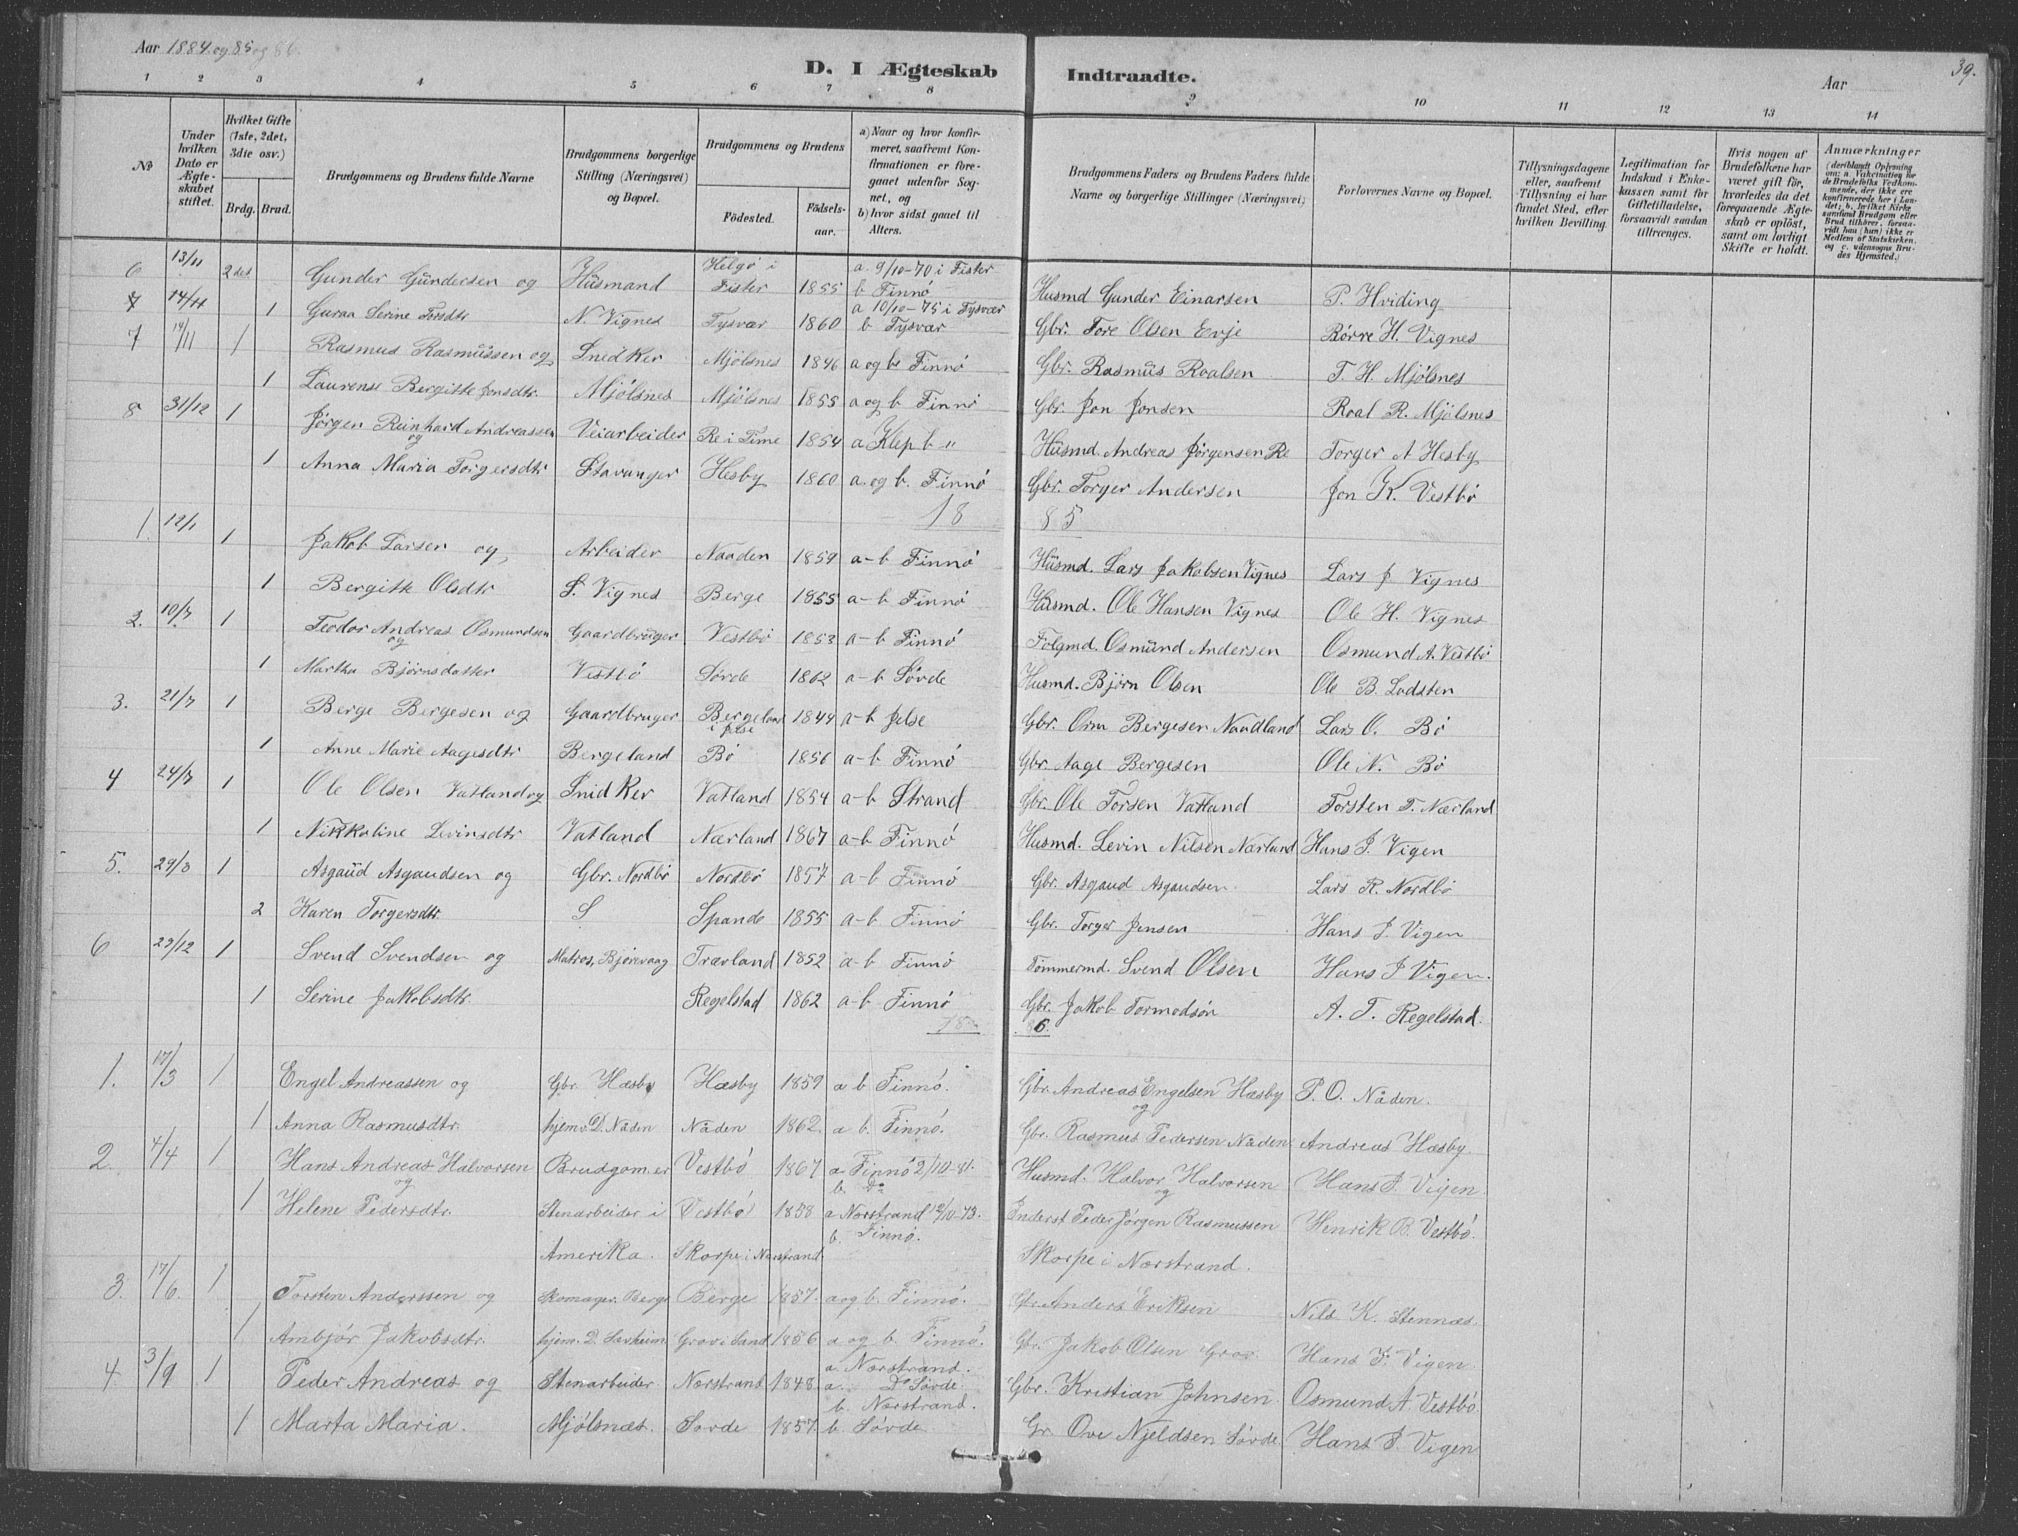 Aar 1884 og 85 og 86.
D. I Ægteskab Indtraadte.
Aar
39.
1 2 3 4 5 6 7 8 9 10 11 12 13 14
No
Under hvilken Dato er Ægteskabet stiftet.
Hvilket Gifte (1ste, 2det, 3die osv.)
Brdg. Brud.
Brudgommens og Brudens fulde Navne
Brudgommens borgerlige Stilling (Næringsvei) og Bopæl.
Brudgommens og Brudens
Födested.
Födselsaar.
a) Naar og hvor konfirmeret, saafremt Konfirmationen er foregaaet udenfor Sognet, og
b) hvor sidst gaaet til Alters.
Brudgommens Faders og Brudens Faders fulde Navne og borgerlige Stillinger (Næringsvei)
Forlovernes Navne og Bopæl.
Tillysningsdagene eller, saafremt Tillysning ei har fundet Sted, efter hvilken Bevilling.
Legitimation for Indskud i Enkekassen samt for Giftetilladelse, forsaavidt saadan tiltrænges.
Hvis nogen af Brudefolkene har været gift för, hvorledes da det foregaaende Ægteskab er oplöst, samt om lovligt Skifte er holdt.
Anmærkninger
(deriblandt Oplysning om: a. Vakcination for de Brudefolks Vedkommende, der ikke ere konfirmerede her i Landet; b. hvilket Kirkesamfund Brudgom eller Brud tilhörer, forsaavidt han (hun) ikke er Medlem af Statskirken, og c. udensogns Brudes Hjemsted.)
6 13/11 2det Gunder Gundersen og Husmand Helgø i Fister 1855 a. 9/10-70 i Fister b Finnö Husmd Gunder Einarsen P. Hviding
7 14/11 1 Guraa Serine Torsdtr N. Vignes Tysvær 1860 a 10/10-75 i Tysvær b Tysvær Gbr. Tore Olsen Evje Börre H. Vignes
7 14/11 1 Rasmus Rasmussen og Snidker Mjölsnes 1846 a og b Finnö Gbr. Rasmus Roalsen T. H. Mjölsnes
1 Laurense Bergitte Jonsdtr. Mjölsnes Mjölsnes 1855 a og b Finnö Gbr Jon Jonsen Roal R. Mjölsnes
8 31/12 1 Jørgen Reinhard Andreassen og Veiarbeider Re i Time 1854 a Klep b " Husmd. Andreas Jørgensen Re Torger A Hesby
1 Anna Maria Torgersdtr Stavanger Hesby 1860 a. og b. Finnö Gbr. Torger Andersen Jon K. Vestbö
18 85
1. 12/1 1 Jakob Larsen og Arbeider Naaden 1859 a-b Finnö Husmd. Lars Jakobsen Vignes Lars J Vignes
1 Bergitte Olsdtr S. Vignes Berge 1855 a-b Finnö Husmd. Ole Hansen Vignes Ole H. Vignes
2. 10/7 1 Teodor Andreas Osmundsen og Gaardbruger Vestbö 1853 a-b Finnö Fölgmd. Osmund Andersen Osmund A. Vestbö
1 Martha Björnsdatter Vestbö Sövde 1862 a-b Sövde Husmd. Björn Olsen Ole B. Lodsten
3. 21/7 1 Berge Bergesen og Gaardbruger Bergeland i Jelse 1844 a-b Jelse Gbr. Orm Bergesen Naadland Lars O. Bö
1 Anne Marie Aagesdtr Bergeland Bö 1856 a-b Finnö Gbr. Aage Bergesen Ole N. Bö
4 24/7 1 Ole Olsen Vatland og Snidker Vatland 1854 a-b Strand Gbr Ole Torsen Vatland Torsten T. Nærland
1 Nikkoline Levinsdtr Vatland Nærland 1867 a-b Finnö Husmd. Levin Nilsen Nærland Hans J. Vigen
5. 29/3 1 Asgaud Asgaudsen og Gbr. Nordbö Nordbö 1857 a-b Finnö Gbr. Asgaud Asgaudsen Lars R. Nordbö
2 Karen Torgersdtr. S Spande 1855 a-b Finnö Gbr. Torger Jensen Hans J. Vigen
6 29/12 1 Svend Svendsen og Matros, Bjørevaag Trævland 1852 a-b Finnö Tömmermd. Svend Olsen Hans J Vigen.
1 Serine Jakobsdtr. Regelstad 1862 a-b Finnö Gbr. Jakob Tormodsön A. T. Regelstad.
18 86.
1. 17/3 1 Engel Andreassen og Gbr. Hæsby Hæsby 1859 a b Finnö. Gbr. Andreas Engelsen Hæsby og P. O. Nåden.
1 Anna Rasmusdtr. hjem. D. Nåden Nåden 1862. a b. Finnö. Gbr. Rasmus Pedersen Nåden Andreas Hæsby.
2. 4/4 1 Hans Andreas Halvorsen og Brudgom. er Vestbö 1867 a Finnö 2/10-81. b. Do Husmd. Halvor Halvorsen og Hans J. Vigen.
1 Helene Pedersdtr. Stenarbeider i Vestbö 1858 a Norstrand 12/10-73. b. Finnö. Enderst Peder Jørgen Rasmussen Henrik B. Vestbö.
Amerika. Skorpe i Norstrand Skorpe i Nærstrand.
3. 17/6. 1 Torsten Anderssen og Skomager. Berge Berge 1857. a og b. Finnö. Gbr. Anders Eriksen Nils K. Stennæs.
1 Ambjör Jakobsdtr. hjem. D. Savheim Grov i Sand 1856 a og b. Finnö. Gbr. Jakob Olsen Grov. Hans J. Vigen.
4. 3/9 1 Peder Andreas og Stenarbeider Nærstrand 1848. a. Nærstrand. a. Do Sövde Gbr. Kristian Johnsen Osmund A Vestbö
1 Marta Maria. Mjölsnæs. Sövde 1857. b. Nærstrand. b Sövde Gr. Ove Njeldsen Sövde. Hans J. Vigen